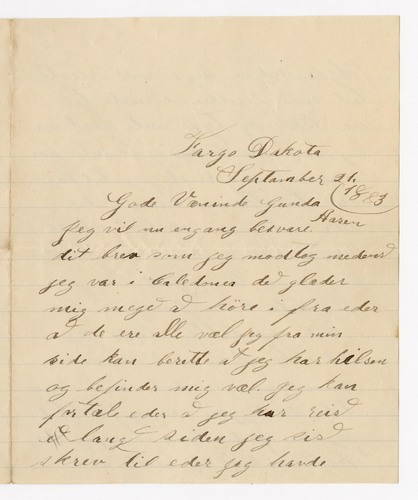 Fargo Dakota
September 2
1883
Gode Veninde Gunda
Haren
Jeg vil nu engang besvare
dit brev som jeg modtog medens
jeg var i Caledonea de glæder
mig meged å höre i fra eder
å de ere alle væl jeg fra min
side kan berette å jeg har hilsen
og befinder mig vel. jeg kan
fortale eder å jeg har reid
lang siden jeg sist
skrev til eder jeg havde